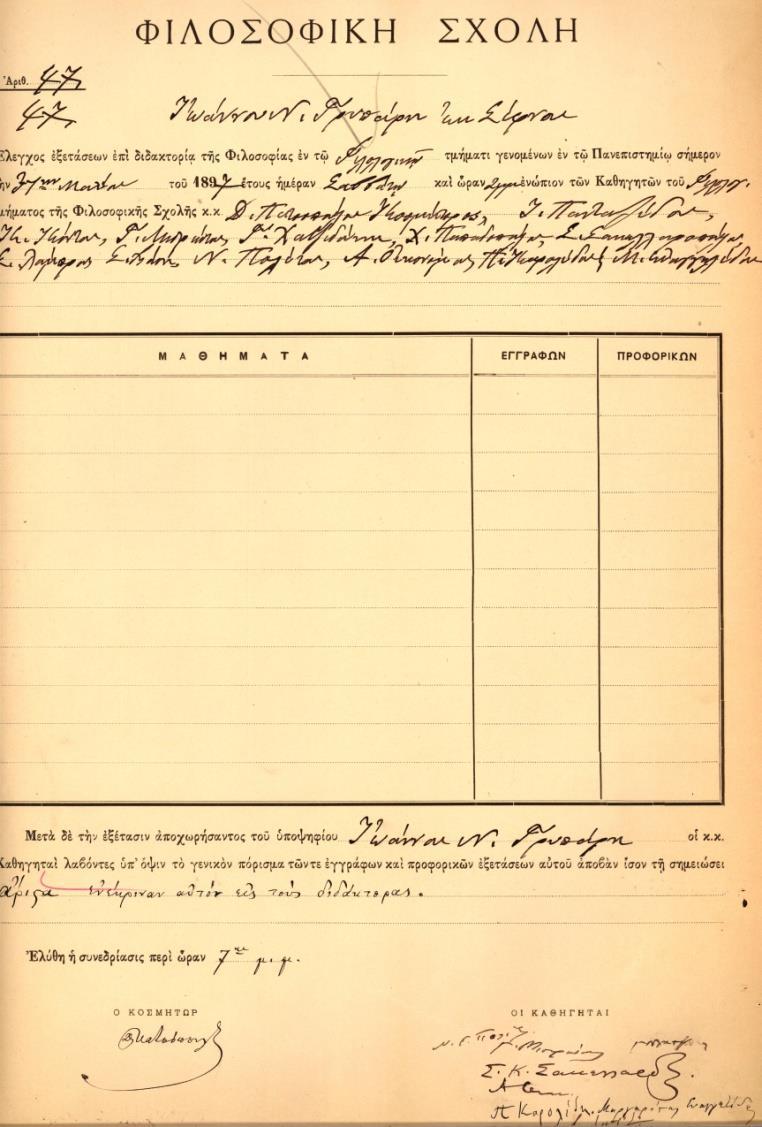 ΦΙΛΟΣΟΦΙΚΗ ΣΧΟΛΗ
Ἀριθ. 47,
47, Ἰωάννου Ν. Γρυπάρη ἐκ Σίφνου
Ἔλεγχος ἐξετάσεων ἐπὶ διδακτορίᾳ τῆς Φιλοσοφίας ἐν τῷ τμήματι γενομένων ἐν τῷ Πανεπιστημίῳ σήμερον
τοῦ 1897 ἔτους ἡμέραν καὶ ὥραν ἐνώπιον τῶν Καθηγητῶν τοῦ Φιλολ.
τμήματος τῆς Φιλοσοφικῆς Σχολῆς κ.κ. Ι. Πανταζίδου,
Κ. Κόντου, Γ. Μιστριώτου, Γ. Χατζιδάκι, Χ. Παπαδοπούλου, Σ. Σακελλαροπούλου,
Σ. Λάμπρου, Σ. Βάση, Ν. Πολίτου, Α. Οἰκονόμου, Π. Καρολίδου, Μ. Εὐαγγελίδου
ΜΑΘΗΜΑΤΑ ΕΓΓΡΑΦΩΝ ΠΡΟΦΟΡΙΚΩΝ
Μετὰ δὲ τὴν ἐξέτασιν ἀποχωρήσαντος τοῦ ὑποψηφίου Ἰωάννου Ν. Γρυπάρη οἱ κ.κ.
Καθηγηταὶ λαβόντες ὑπ' ὄψιν τὸ γενικὸν πόρισμα τῶντε ἐγγράφων καὶ προφορικῶν ἐξετάσεων αὐτοῦ ἀποβὰν ἴσον τῇ σημειώσει
ἄριστα ἐνέκριναν αὐτὸν εἰς τοὺς διδάκτορας.
Ἐλύθη ἡ συνεδρίασις περὶ ὥραν 7ην μ.μ.
Ο ΚΟΣΜΗΤΩΡ ΟΙ ΚΑΘΗΓΗΤΑΙ
Ν. Γ. Πολίτης
Σ. Κ.
Π. Καρολίδης Μαργαρίτης Εὐαγγελίδης